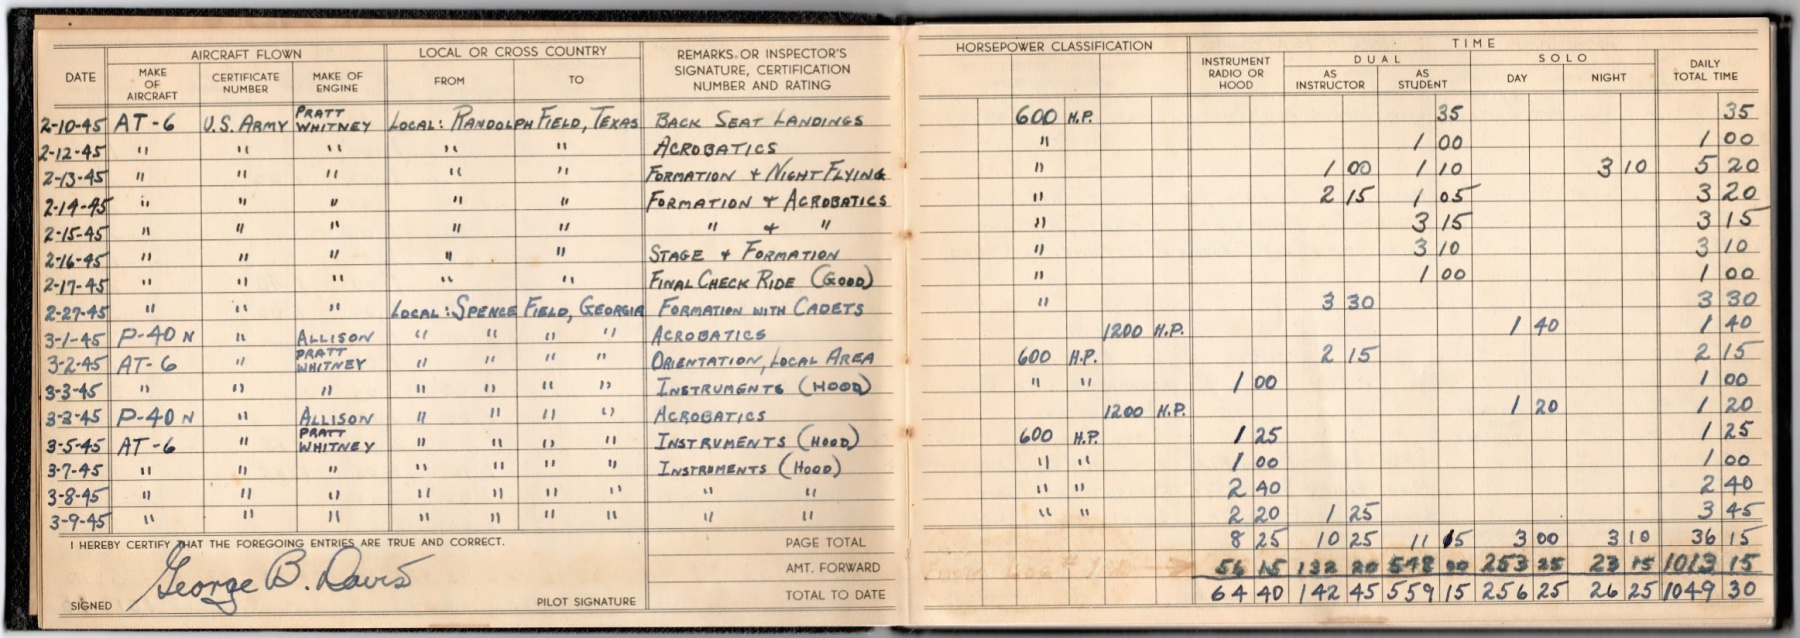 AIRCRAFT FLOWN LOCAL OR CROSS COUNTRY REMARKS OR INSPECTOR'S SIGNATURE, CERTIFICATION NUMBER AND RATING HORSEPOWER CLASSIFICATION TIME
DATE MAKE OF AIRCRAFT CERTIFICATE NUMBER MAKE OF ENGINE FROM TO INSTRUMENT RADIO OR HOOD DUAL AS INSTRUCTOR AS STUDENT SOLO DAY NIGHT DAILY TOTAL TIME
2-10-45 AT-6 U.S. ARMY PRATT WHITNEY LOCAL: RANDOLPH FIELD, TEXAS BACK SEAT LANDINGS 600 H.P. 35 35
2-12-45 " " " " " ACROBATICS " 1 00 1 00
2-13-45 " " " " " FORMATION + NIGHT FLYING " 1 00 1 10 3 10 5 20
2-14-45 " " " " " FORMATION + ACROBATICS " 2 15 1 05 3 20
2-15-45 " " " " " " + " " 3 15 3 15
2-16-45 " " " " " STAGE + FORMATION " 3 10 3 10
2-17-45 " " " " " FINAL CHECK RIDE (GOOD) " 1 00 1 00
2-27-45 " " " LOCAL: SPENCE FIELD, GEORGIA FORMATION WITH CADETS " 3 30 3 30
3-1-45 P-40 N " ALLISON " " " " ACROBATICS 1200 H.P. 1 40 1 40
3-2-45 AT-6 " PRATT WHITNEY " " " " ORIENTATION, LOCAL AREA 600 H.P. 2 15 2 15
3-3-45 " " " " " " " INSTRUMENTS (HOOD) " " 1 00 1 00
3-3-45 P-40 N " ALLISON " " " " ACROBATICS 1200 H.P. 1 20 1 20
3-5-45 AT-6 " PRATT WHITNEY " " " " INSTRUMENTS (HOOD) 600 H.P. 1 25 1 25
3-7-45 " " " " " " " INSTRUMENTS (HOOD) " " 1 00 1 00
3-8-45 " " " " " " " " " " " 2 40 2 40
3-9-45 " " " " " " " " " " " 2 20 1 25 3 45
I HEREBY CERTIFY THAT THE FOREGOING ENTRIES ARE TRUE AND CORRECT. PAGE TOTAL 8 25 10 25 11 15 3 00 3 10 36 15
George B. Davis AMT. FORWARD 56 15 132 20 548 00 253 25 23 15 1013 15
SIGNED PILOT SIGNATURE TOTAL TO DATE 64 40 142 45 559 15 256 25 26 25 1049 30